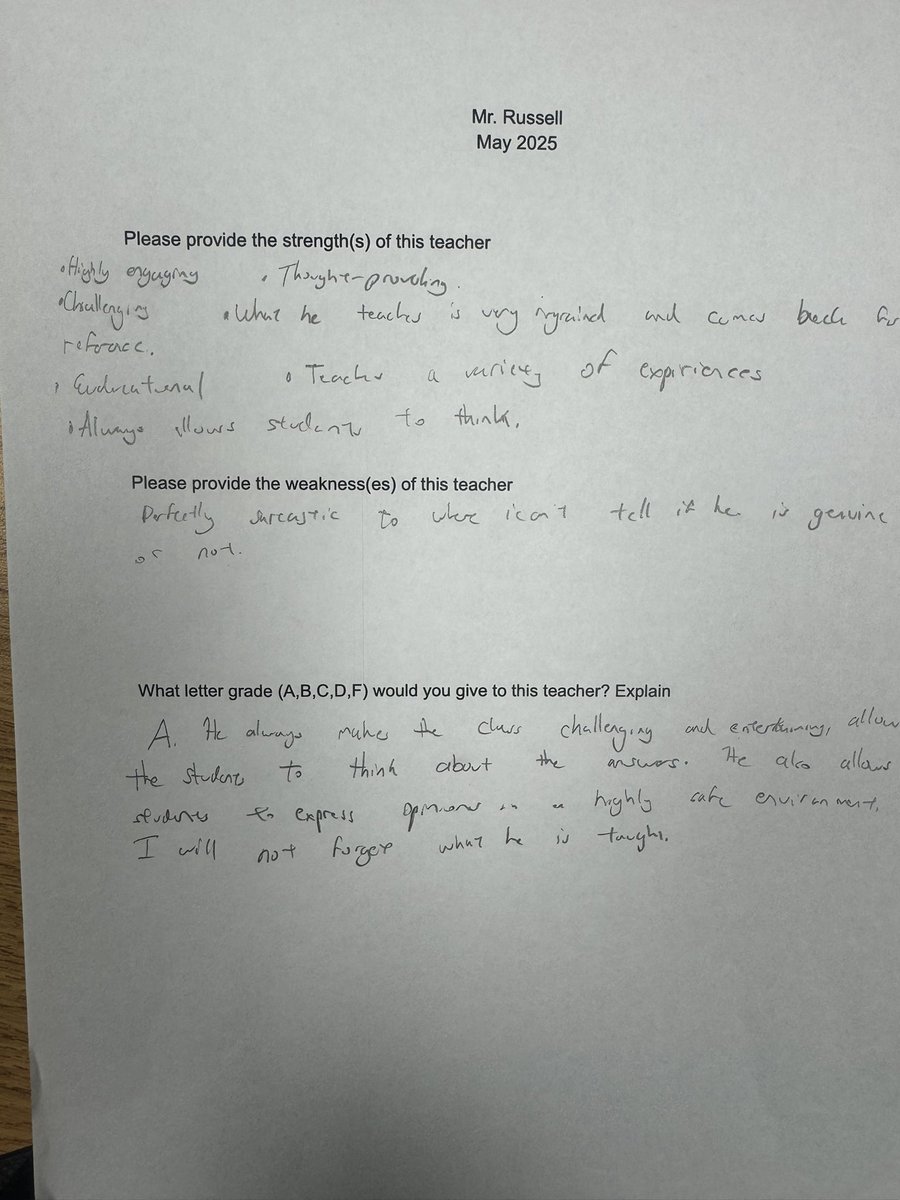 Mr. Russell
May 2025
Please provide the strength(s) of this teacher
• Highly engaging • Thought-provoking.
• Challenging • What he teaches is very ingrained and comes back for
reference.
• Eudcational • Teaches a variety of expiriences
• Always allows students to think.
Please provide the weakness(es) of this teacher
Perfectly sarcastic to where i can't tell if he is genuine
or not.
What letter grade (A,B,C,D,F) would you give to this teacher? Explain
A. He always makes the class challenging and entertaining, allow
the students to think about the answers. He also allows
students to express opinions in a highly safe environment.
I will not forget what he is taught.